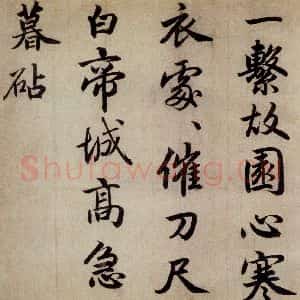 一繫故園心寒
衣處、催刀尺
白帝城髙急
暮砧
Shufawang.cn